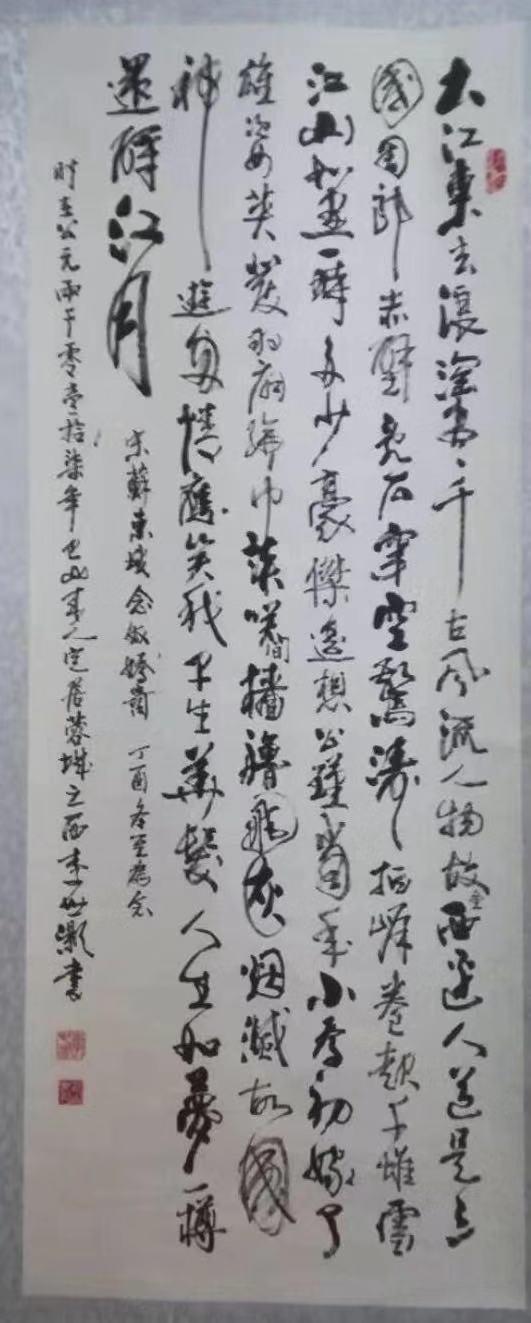 大江東去浪淘盡千古風流人物故壘西邊人道是三
國周郎赤壁亂石穿空驚濤拍岸卷起千堆雪
江山如畫一時多少豪傑遙想公瑾當年小喬初嫁了
雄姿英發羽扇綸巾談笑間檣櫓飛灰烟滅故國
神遊多情應笑我早生華髮人生如夢一樽
還酹江月
宋蘇東坡念奴嬌 丁酉冬至為念
时在公元兩千零壹拾柒年巴山人定居蓉城之西李世灝書